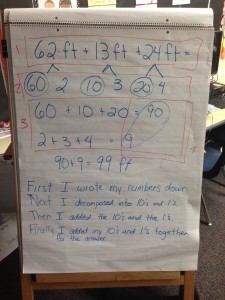 1 62 ft + 13 ft + 24 ft =
2 60 2 10 3 20 4
3 60 + 10 + 20 = 90
2 + 3 + 4 = 9
90 + 9 = 99 ft
First I wrote my numbers down.
Next I decomposed into 10's and 1's.
Then I added the 10's and the 1's.
Finally I added my 10's and 1's together
for the answer.